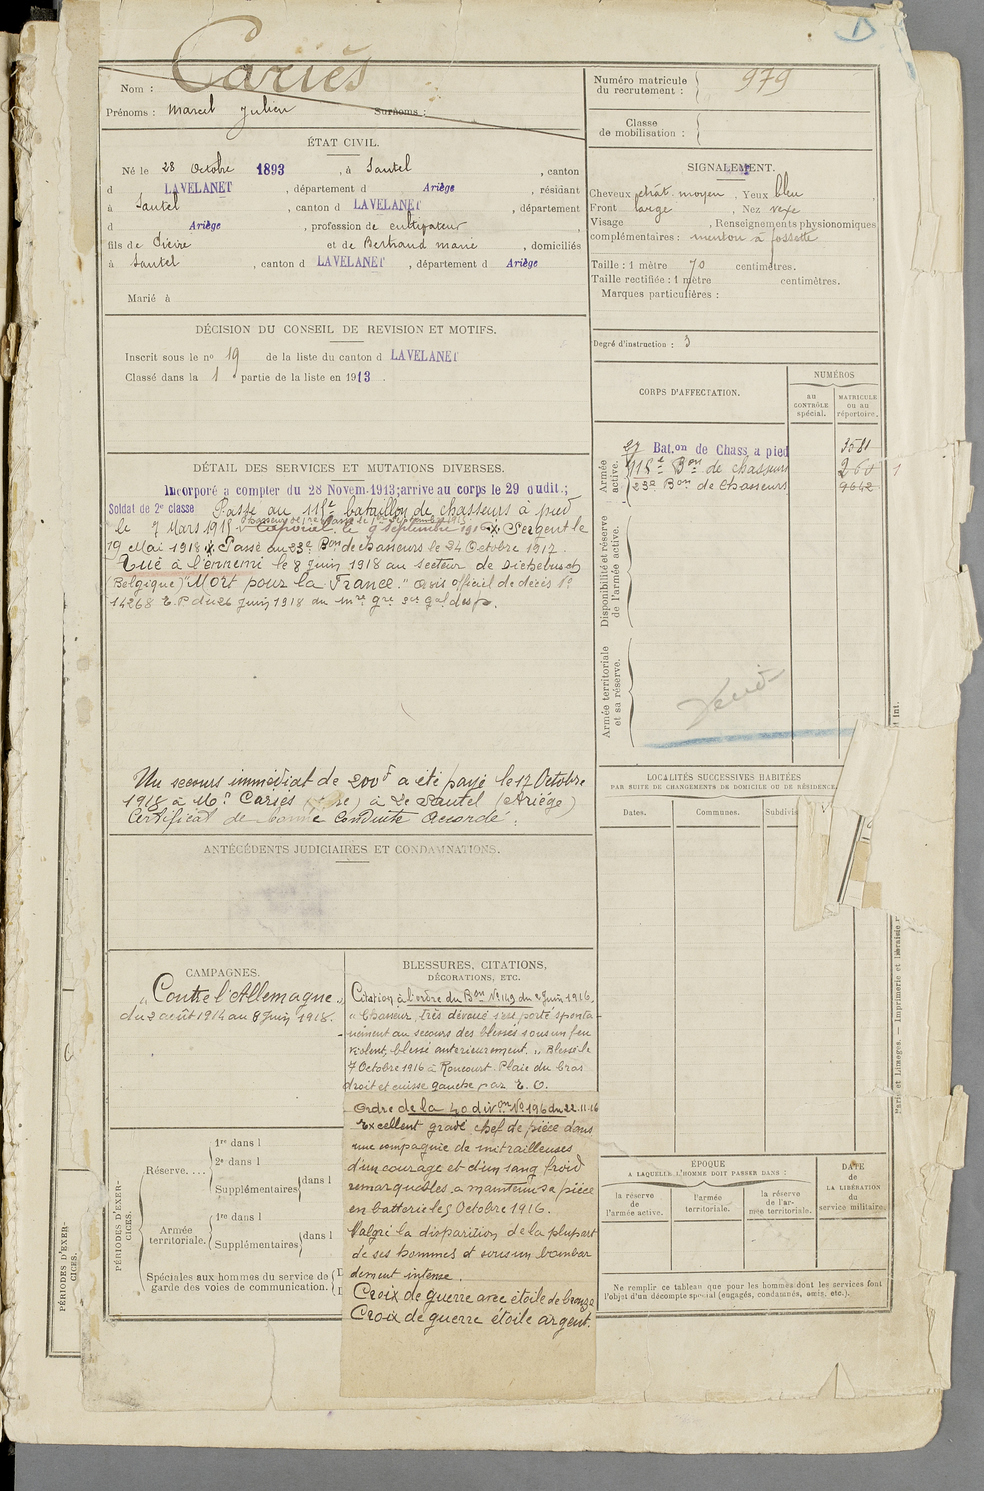 Nom : Cariès
Prénoms : Marcel Julien Surnoms :
Numéro matricule du recrutement : 979
Classe de mobilisation :
ÉTAT CIVIL.
Né le 28 Octobre 1893, à Sautel, canton
d LAVELANET, département d Ariège, résidant
à Sautel, canton d LAVELANET, département
d Ariège, profession de cultivateur
fils de Pierre et de Bertrand Marie, domiciliés
à Sautel, canton d LAVELANET, département d Ariège
Marié à
SIGNALEMENT.
Cheveux chât. moyen, Yeux bleu
Front large, Nez vexe
Visage , Renseignements physionomiques
complémentaires : menton à fossette
Taille : 1 mètre 70 centimètres.
Taille rectifiée : 1 mètre centimètres.
Marques particulières :
Degré d'instruction : 3
DÉCISION DU CONSEIL DE REVISION ET MOTIFS.
Inscrit sous le nº 19 de la liste du canton d LAVELANET
Classé dans la 1 partie de la liste en 1913.
CORPS D'AFFECTATION.
NUMÉROS
au CONTRÔLE spécial.
MATRICULE ou au répertoire.
Armée active.
27 Bat.on de Chass. a pied
118e Bon de chasseurs
23e Bon de Chasseurs 9642
Disponibilité et réserve de l'armée active.
Armée territoriale et sa réserve.
DÉTAIL DES SERVICES ET MUTATIONS DIVERSES.
Incorporé a compter du 28 Novem. 1913; arrive au corps le 29 oudit.;
Soldat de 2e classe Passé au 118e bataillon de chasseurs à pied
le 7 Mars 1915 Caporal le 9 Septembre 1916 Sergent le
19 Mai 1918 Passé au 23e Bon de chasseurs le 24 Octobre 1917.
Tué à l'ennemi le 8 juin 1918 au secteur de Dichebusch
(Belgique) "Mort pour la France." Avis officiel de décès Nº
14268 E. P du 26 juin 1918
Un secours immédiat de 200f a été payé le 17 Octobre
1918 à Mr Cariès (père) à Le Sautel (Ariége)
Certificat de bonne conduite Accordé.
LOCALITÉS SUCCESSIVES HABITÉES
PAR SUITE DE CHANGEMENTS DE DOMICILE OU DE RÉSIDENCE.
Dates. Communes. Subdivis
ANTÉCÉDENTS JUDICIAIRES ET CONDAMNATIONS.
CAMPAGNES.
"Contre l'Allemagne"
du 2 août 1914 au 8 Juin 1918.
BLESSURES, CITATIONS,
DÉCORATIONS, ETC.
Citation à l'ordre du Bon Nº 149 du 2 Juin 1916.
"Chasseur très dévoué s'est porté sponta-
nément au secours des blessés sous un feu
violent, blessé antérieurement." Blessé le
7 Octobre 1916 à Roncourt. Plaie du bras
droit et cuisse gauche par E. O.
Ordre de la 40 divon Nº 196 du 22.11.16
Excellent gradé chef de pièce dans
une compagnie de mitrailleuses
d'un courage et d'un sang froid
remarquables. a maintenu sa pièce
en batterie le 5 Octobre 1916.
Malgré la disparition de la plupart
de ses hommes et sous un bombar
dement intense.
Croix de guerre avec étoile de bronze
Croix de guerre étoile argent.
PÉRIODES D'EXERCICES.
Réserve....
1re dans l
2e dans l
Supplémentaires dans l
Armée territoriale.
1re dans l
Supplémentaires dans l
Spéciales aux hommes du service de
garde des voies de communication.
EPOQUE
A LAQUELLE L'HOMME DOIT PASSER DANS :
la réserve de l'armée active.
l'armée territoriale.
la réserve de l'armée territoriale.
DATE de LA LIBÉRATION du service militaire.
Ne remplir ce tableau que pour les hommes dont les services font
l'objet d'un décompte spécial (engagés, condamnés, omis, etc.).
PÉRIODES D'EXERCICES.